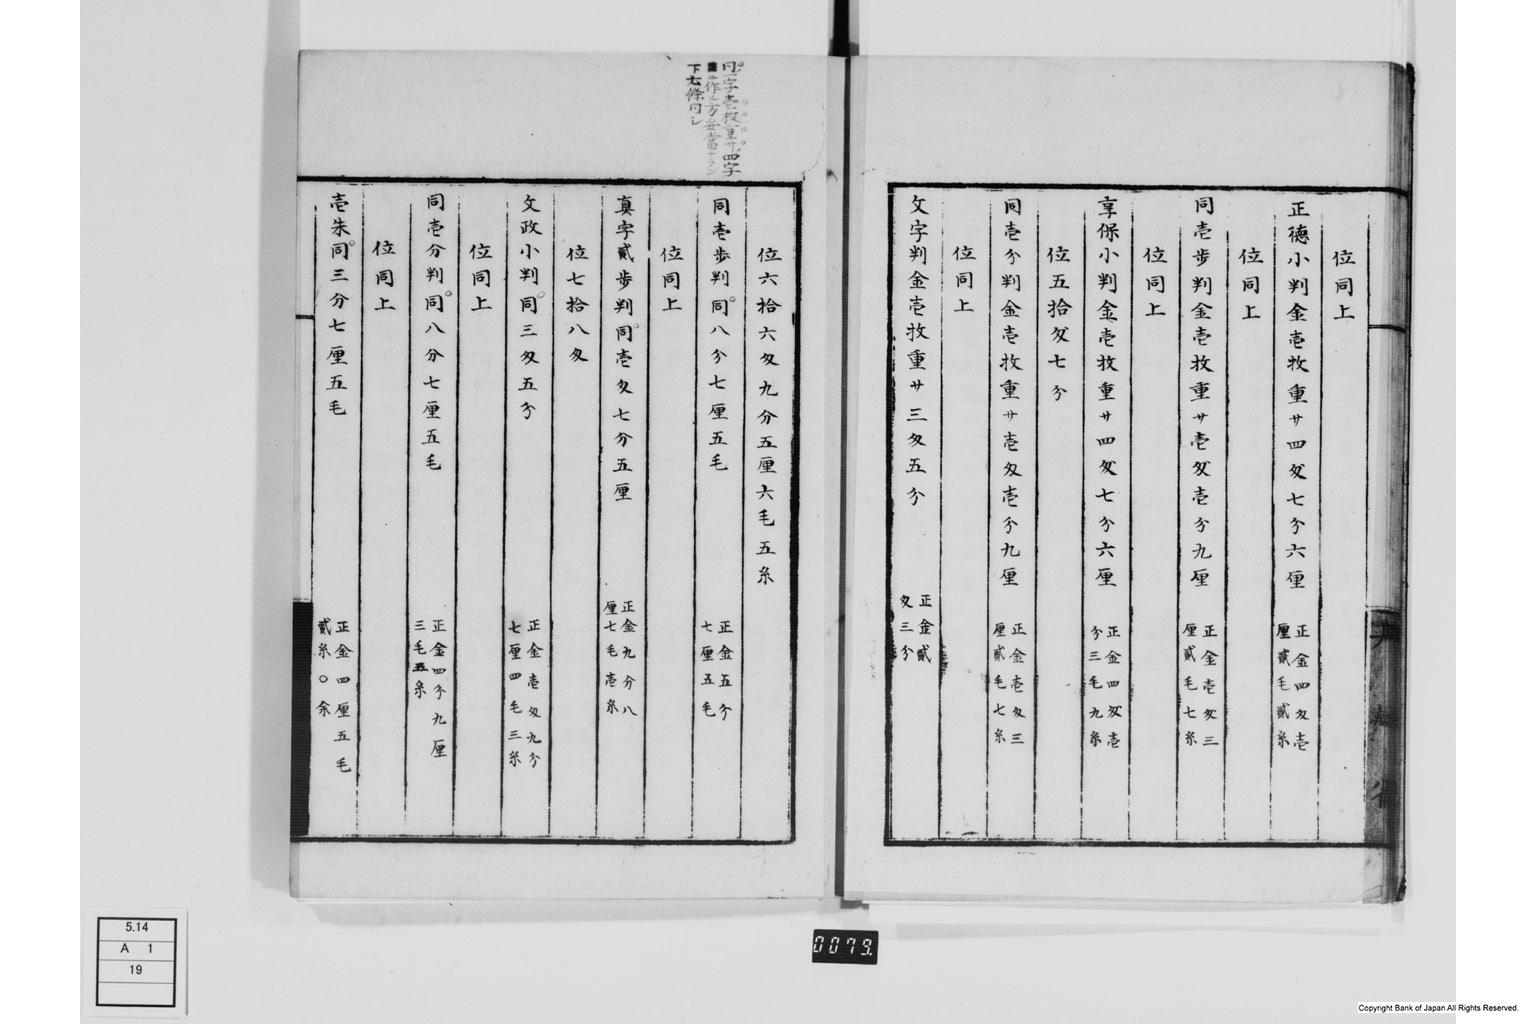 位同上
正德小判金壱枚重サ四匁七分六厘 正金四匁壱厘貳毛貳糸
同壱歩判金壱枚重サ壱匁壱分九厘 正金壱匁三厘貳毛七糸
位同上
位同上
享保小判金壱枚重サ四匁七分六厘 正金四匁壱分三毛九糸
位五拾匁七分
同壱分判金壱枚重サ壱匁壱分九厘 正金壱匁三厘貳毛七糸
位同上
文字判金壱枚重サ三匁五分 正金貳匁三分
位六拾六匁九分五厘六毛五糸
同壱歩判同八分七厘五毛 正金五分七厘五毛
位同上
真字貳歩判同壱匁七分五厘 正金九分八厘七毛壱糸
位七拾八匁
文政小判同三匁五分 正金壱匁九分七厘四毛三糸
位同上
同壱分判同八分七厘五毛 正金四分九厘三毛五糸
位同上
壱朱同三分七厘五毛 正金四厘五毛貳糸〇余
同ノ字壱枚重サノ四字
ニ作ル方妥當ナラン
下七條同シ
5.14
A 1
19
0079.
Copyright Bank of Japan All Rights Reserved.